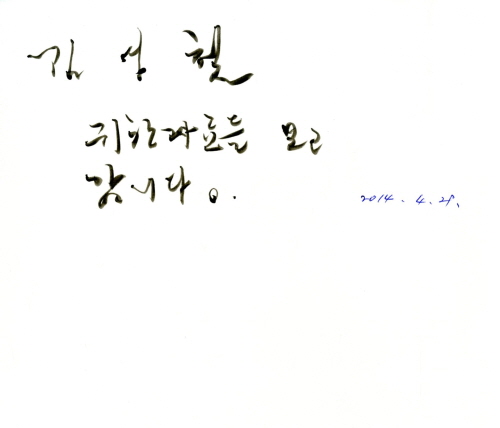 김성철
귀한자료를 보고
갑니다.
2014. 4. 29.